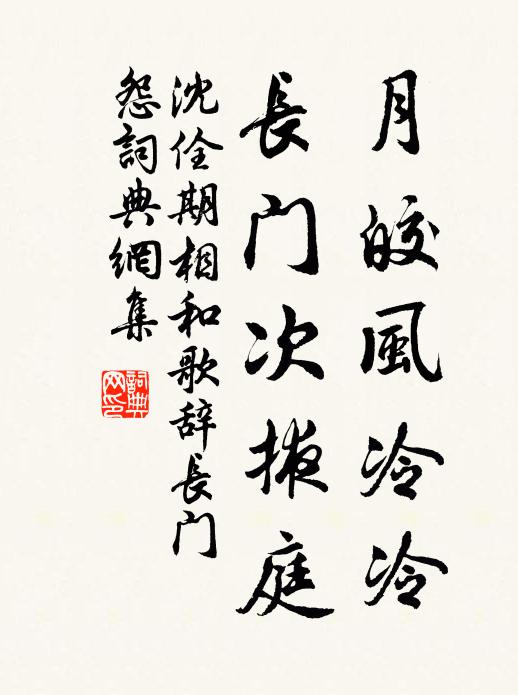 月皎風冷冷
長门次掖庭
沈佺期相和歌辞長门
怨詞典網集
詞典
网印